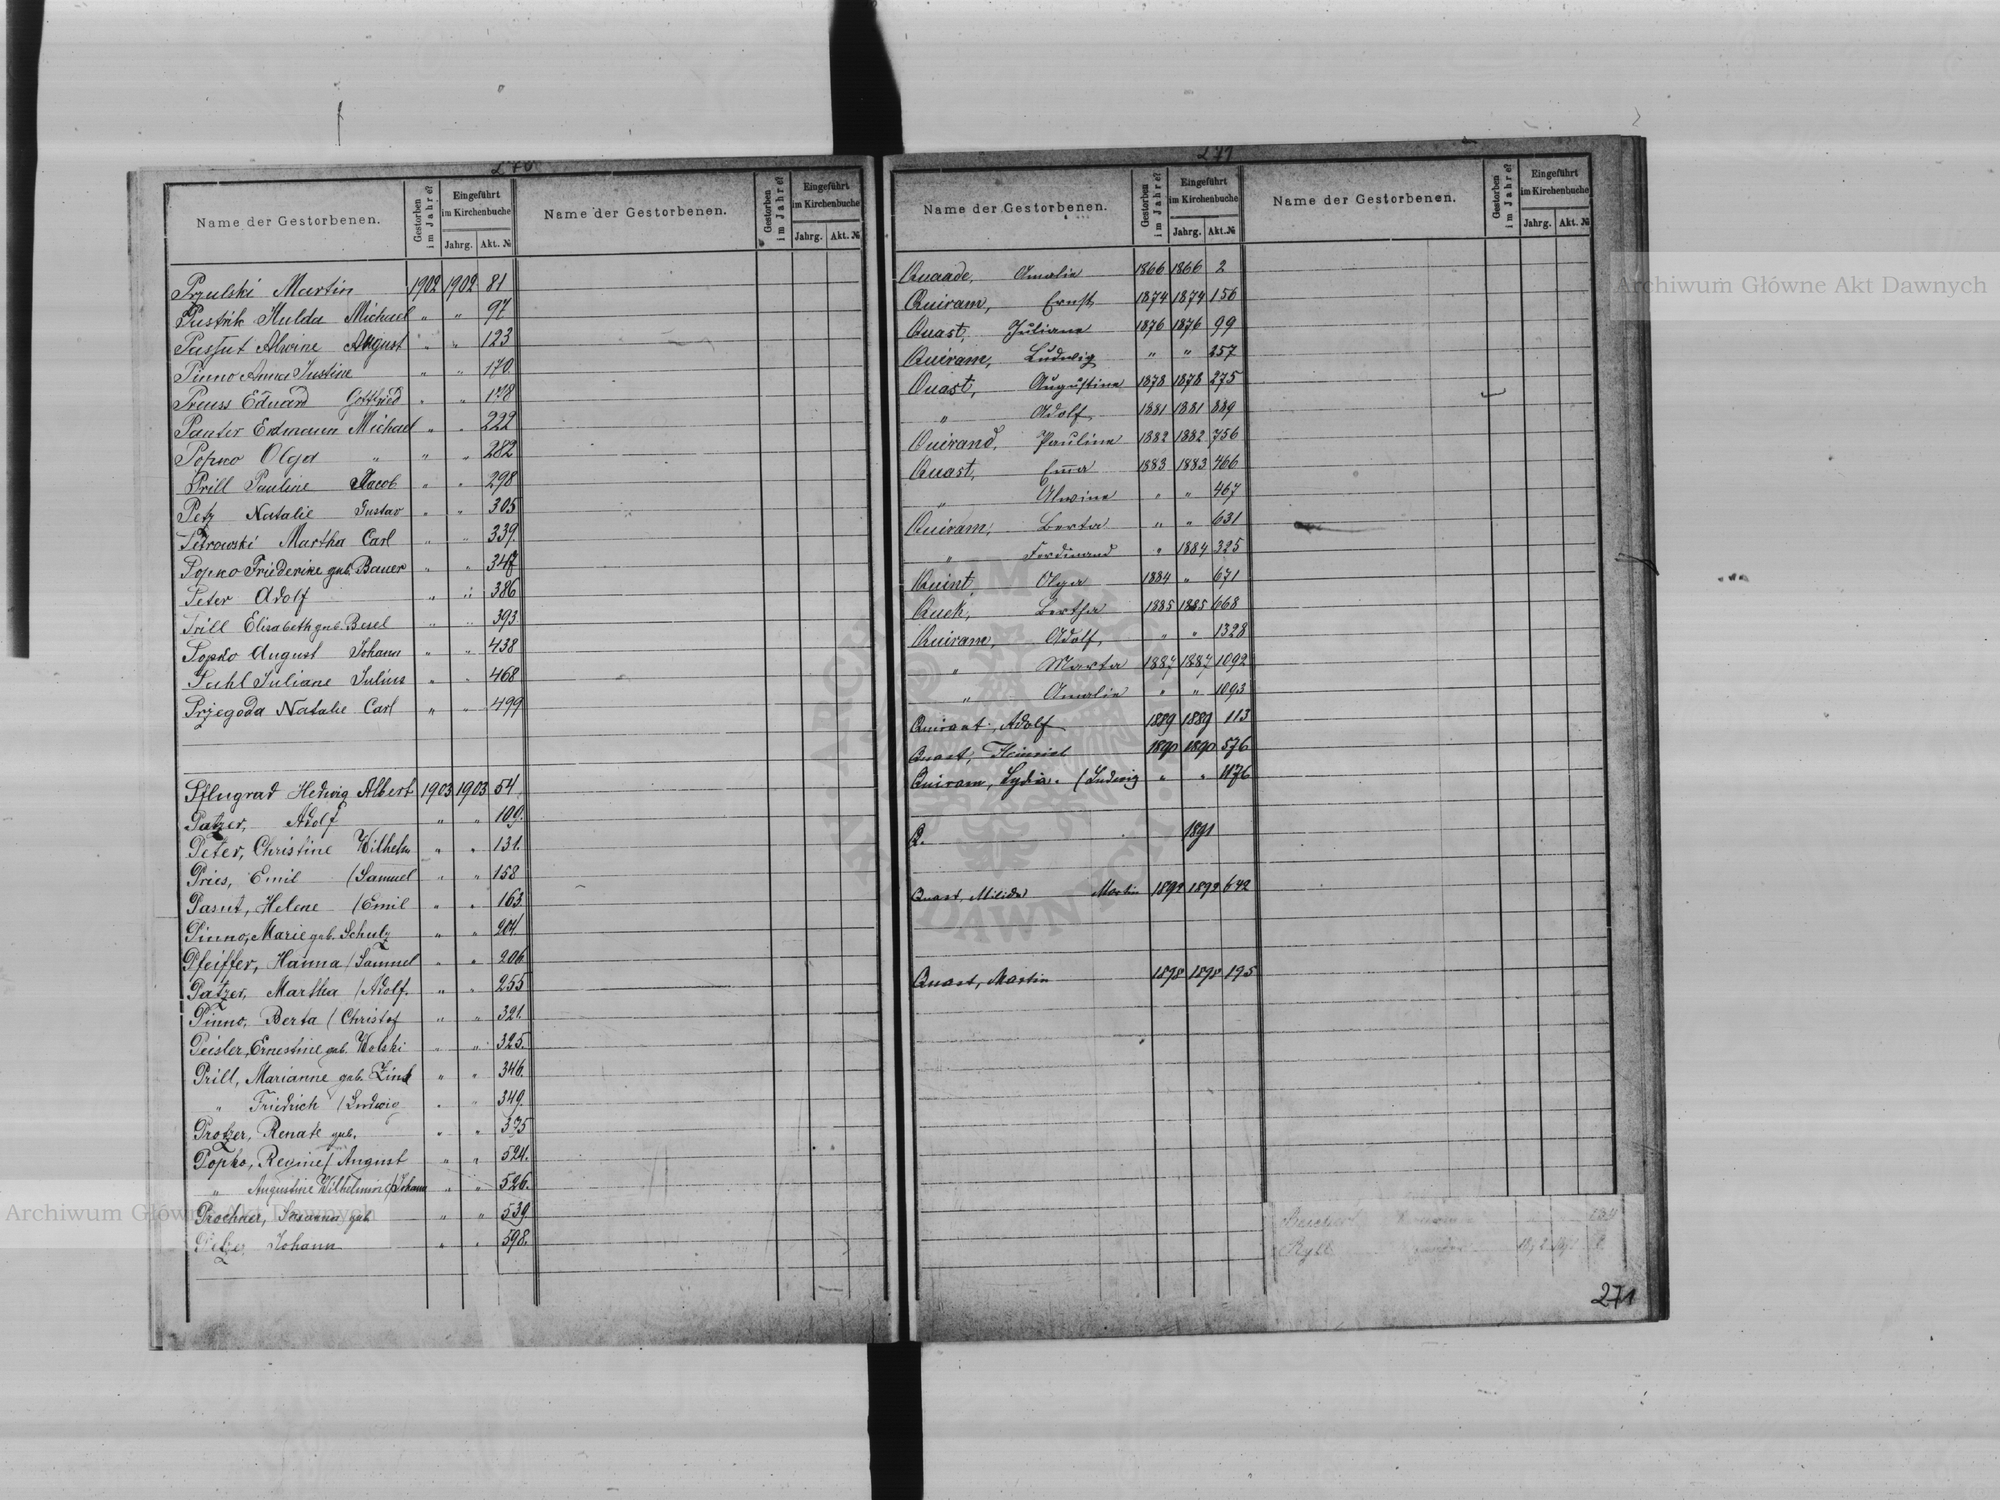 270
Name der Gestorbenen. Gestorben im Jahre? Eingeführt im Kirchenbuche Jahrg. Akt. № Name der Gestorbenen. Gestorben im Jahre? Eingeführt im Kirchenbuche Jahrg. Akt. №
Przulski Martin 1902 1902 81
Pustrik Hulda Michael " " 97
Passut Alwine August " " 123
Pinno Anna Justine " " 170
Preuss Eduard Gottfried " " 178
Panter Erdmann Michael " " 222
Popko Olga " " " 282
Prill Pauline Jacob " " 298
Petz Natalie Gustav " " 305
Petrowski Martha Carl " " 339.
Popko Friederike geb. Bauer " " 347
Peter Adolf " " 386
Prill Elisabeth geb. Besel " " 393
Popko August Johann " " 438
Pahl Juliane Julius " " 468
Przegoda Natalie Carl " " 499
Pflugrad Hedwig Albert 1903 1903 54.
Patzer, Adolf " " 109.
Peter, Christine Wilhelm " " 131.
Pries, Emil /Samuel " " 158
Pasut, Helene /Emil " " 163.
Pinno, Marie geb. Schulz " " 204
Pfeiffer, Hanna /Samuel " " 206
Patzer, Martha /Adolf. " " 255
Pinno, Berta / Christof " " 321.
Peisler, Ernestine geb. Wolski " " 325.
Prill, Marianne geb. Zink " " 346.
" Friedrich /Ludwig " " 349.
Protzer, Renate geb. " " 375
Popko, / August " " 524.
" Augustine Wilhelmine /Johann " " 526.
Prochner, Susanna geb " " 539
Johann " " 598.
271
Name der Gestorbenen. Gestorben im Jahre? Eingeführt im Kirchenbuche Jahrg. Akt. № Name der Gestorbenen. Gestorben im Jahre? Eingeführt im Kirchenbuche Jahrg. Akt. №
Quaade, Amalie 1866 1866 2
Quiram, Ernst 1874 1874 156
Quast, Juliane 1876 1876 99
Quiram, Ludwig " " 257
Quast, Augustine 1878 1878 275
" Adolf 1881 1881 889
Quirand, Pauline 1882 1882 756
Quast, Emma 1883 1883 466
" Alwine " " 467
Quiram, Berta " " 631
" Ferdinand " 1884 325
Quint, Olga 1884 " 671
Quek, Bertha 1885 1885 668
Quiram, Adolf, " " 1328
" Marta 1887 1887 1092
" Amalie " " 1093
Quirant, Adolf 1889 1889 113
Quast, Heinrich 1890 1890 576
Quiram, Lydia. /Ludwig " " 1176
Q. 1891
Quast, Martin 1892 1892 642
Quast, Martin 1898 1898 195
271
Archiwum Główne Akt Dawnych
Archiwum Główne Akt Dawnych
ARCHIWUM GŁÓWNE AKT DAWNYCH